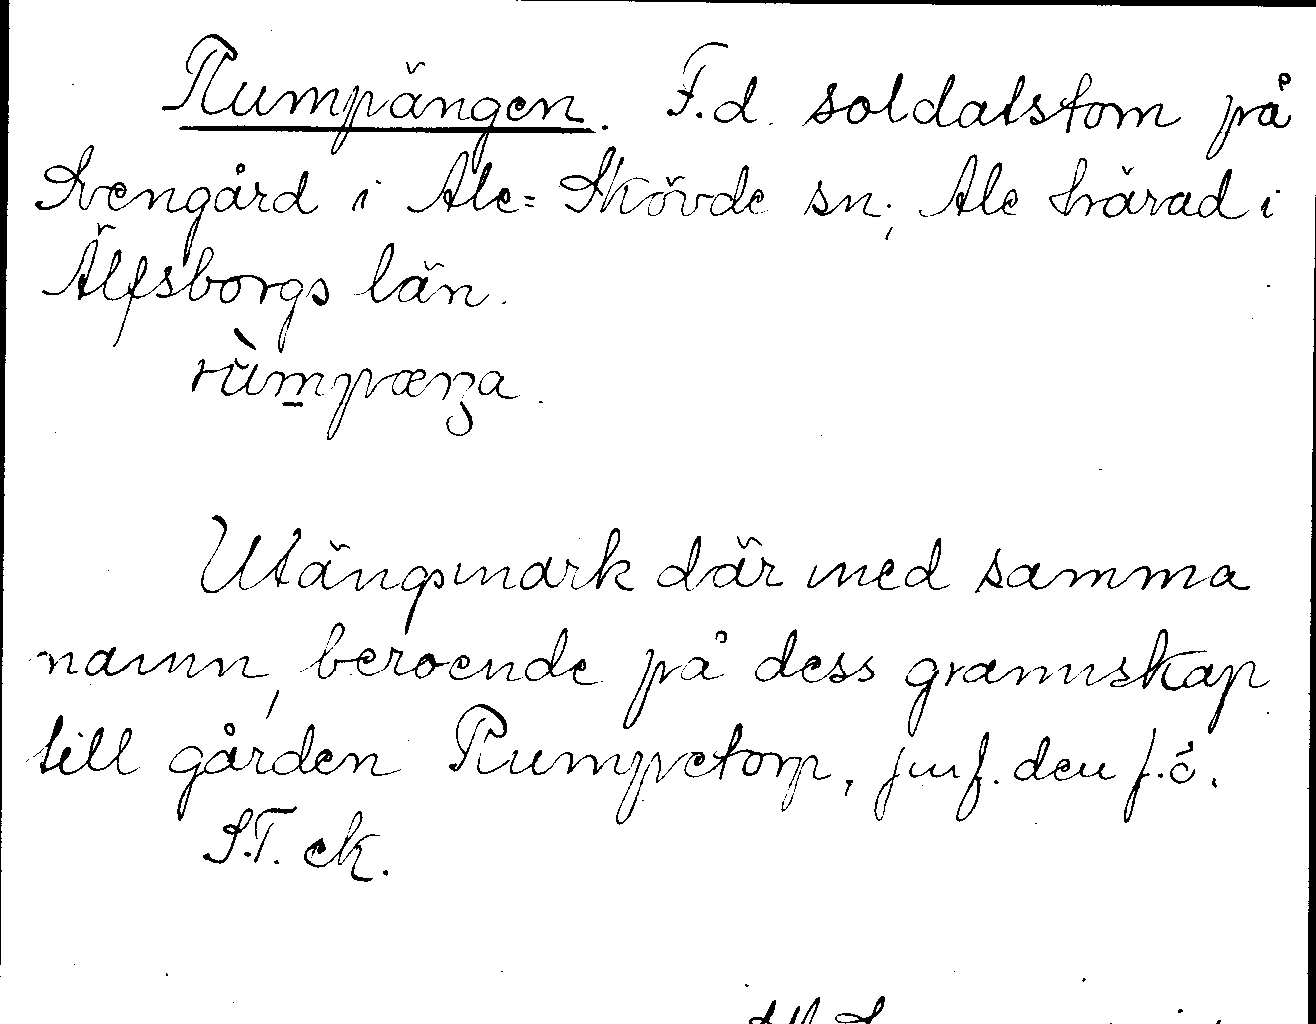 Rumpängen. F.d. soldatstom på
Svengård i Ale-Skövde sn; Ale härad i
Älfsborgs län.
rùmpæŋa.
Utängsmark där med samma
namn, beroende på dess grannskap
till gården Rumpetorp, jmf. den f.ö.
S.T. ek.